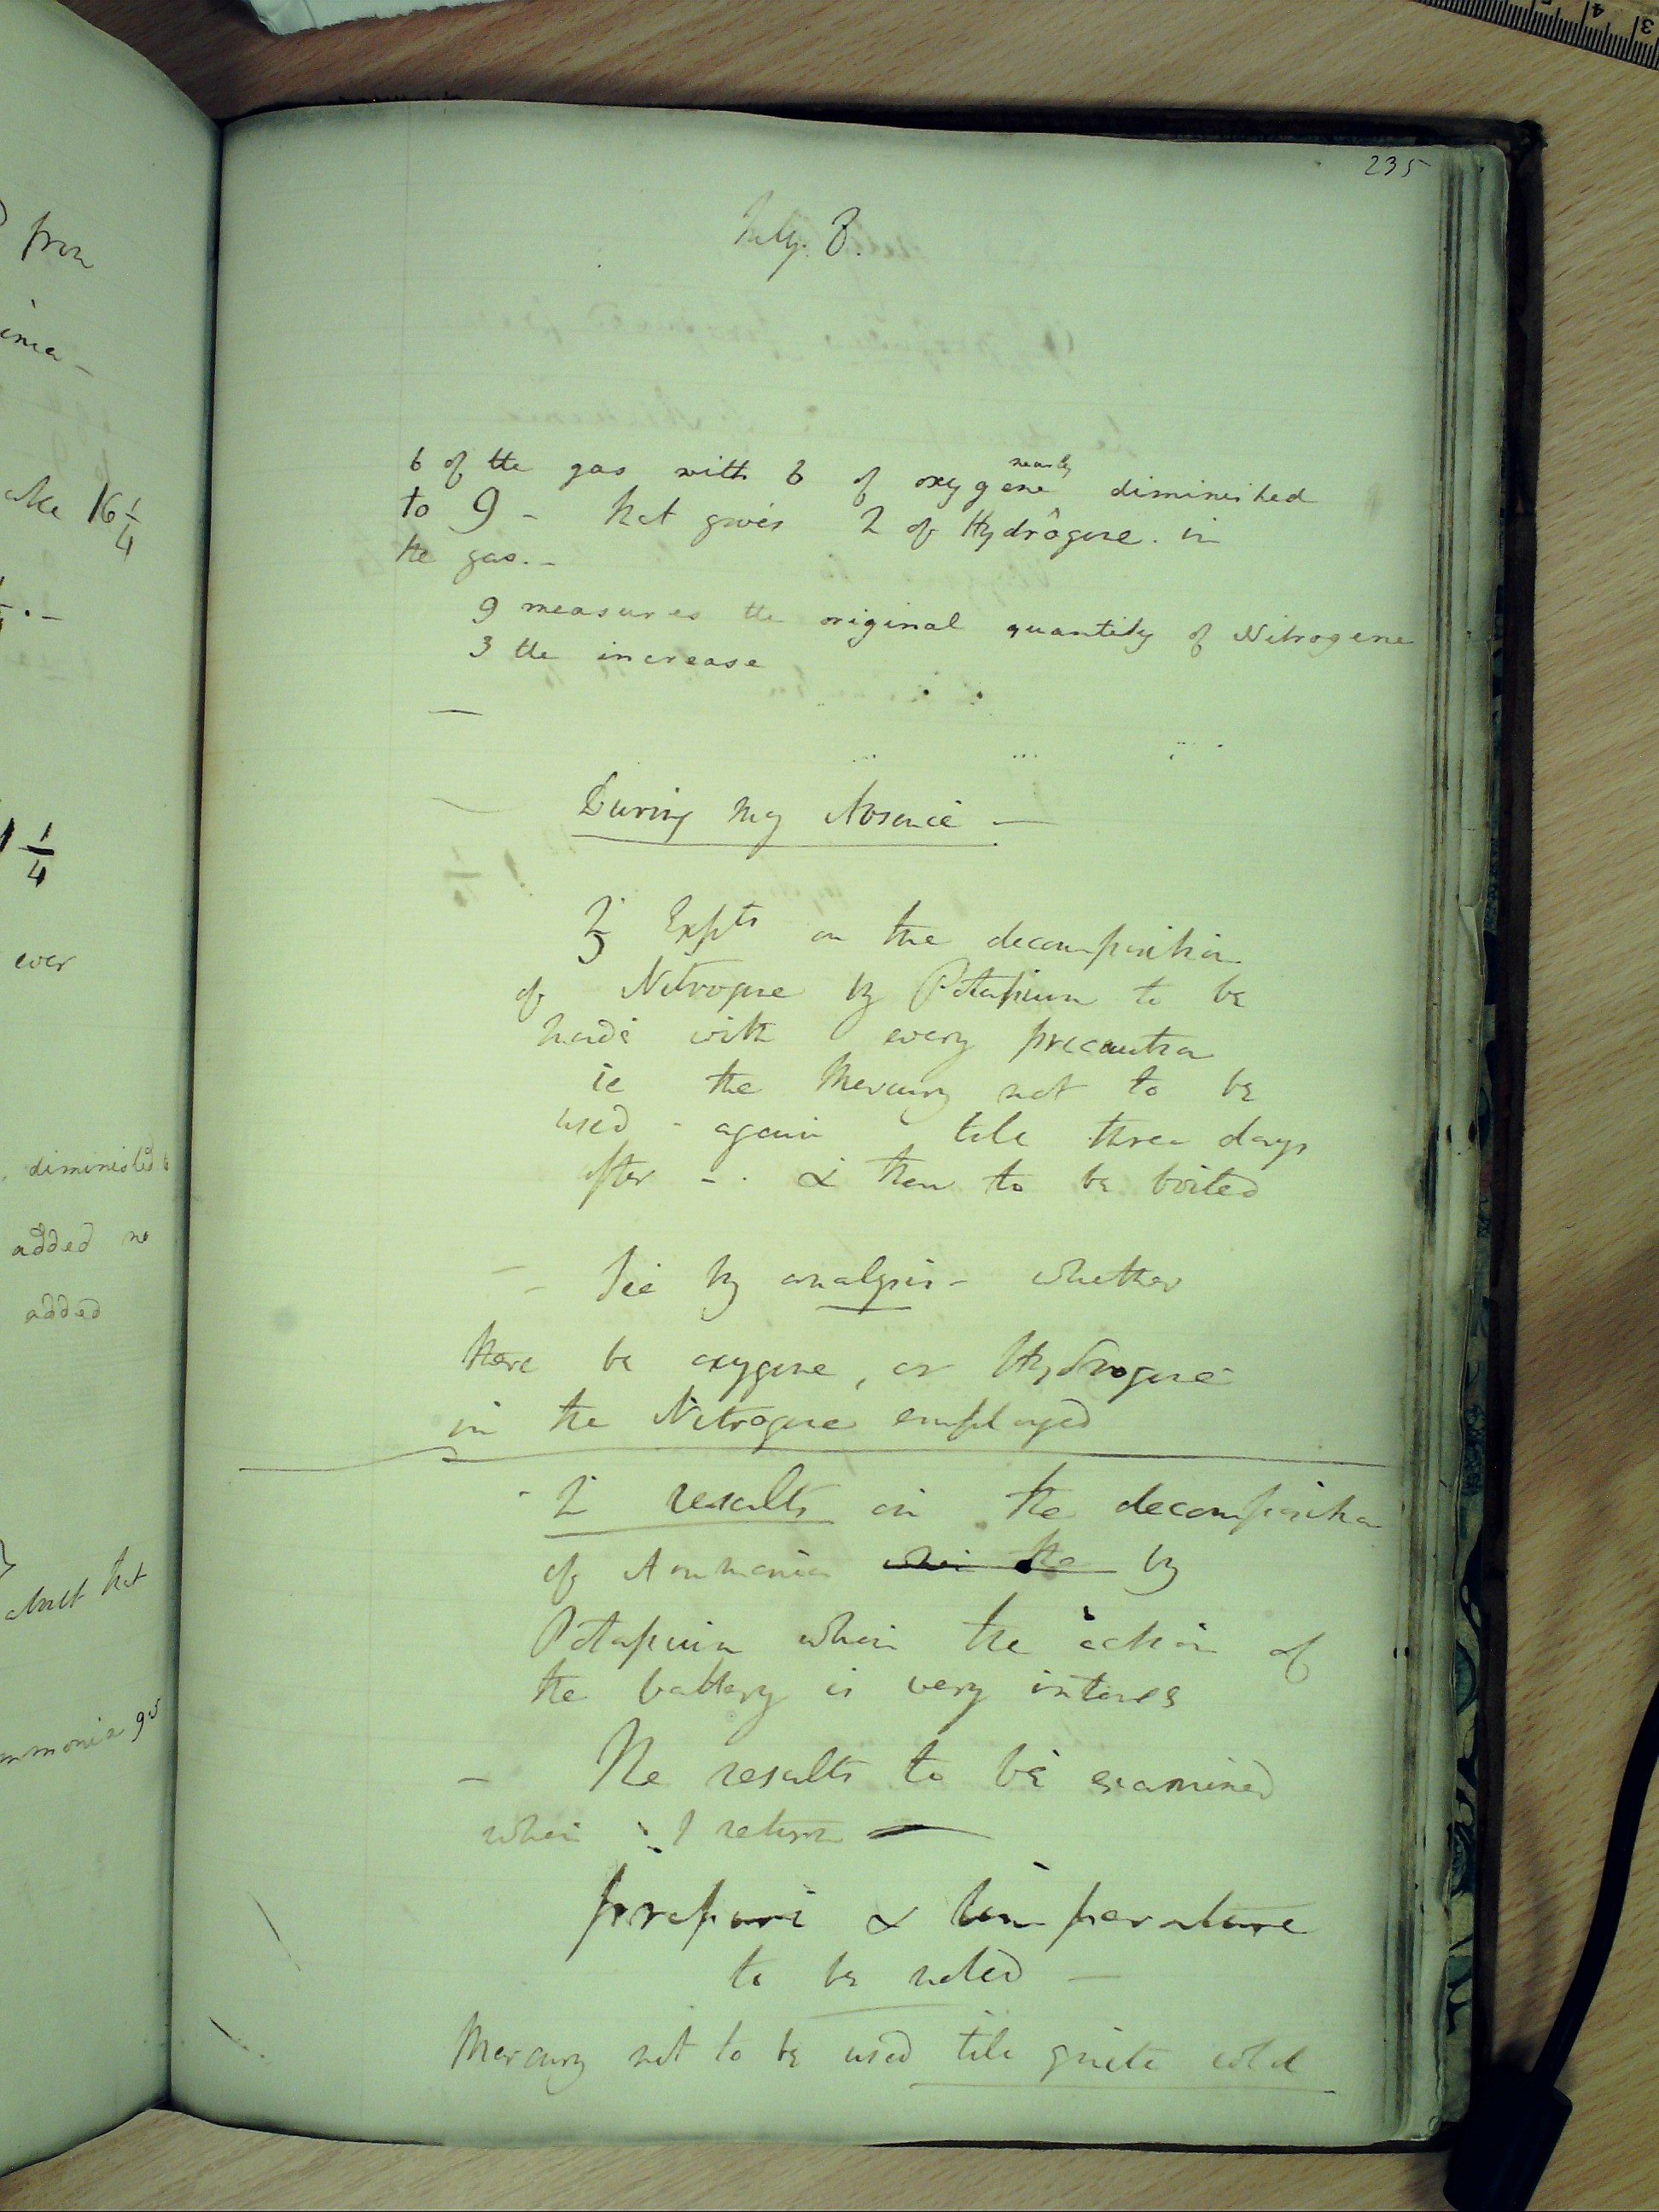 from
16 1/4
1 1/4
ever
diminished
added no
added
that
ammonia gas
235
July. 8.
6 of the gas with 6 of oxygene nearly diminished
to 9 - that gives 2 of Hydrogene. in
the gas. -
9 measures the original quantity of Nitrogene
3 the increase
During my Absence -
Expts on the decomposition
of Nitrogene by Potassium to be
made with every precaution
ie the Mercury not to be
used - again till three days
after - . & then to be boiled
- See by analysis - whether
there be oxygene, or Hydrogene
in the Nitrogene employed
2 results on the decomposition
of Ammonia when the by
Potassium when the action of
the battery is very intense
- The results to be examined
when I return -
pressure & temperature
to be noted -
Mercury not to be used till quite cold